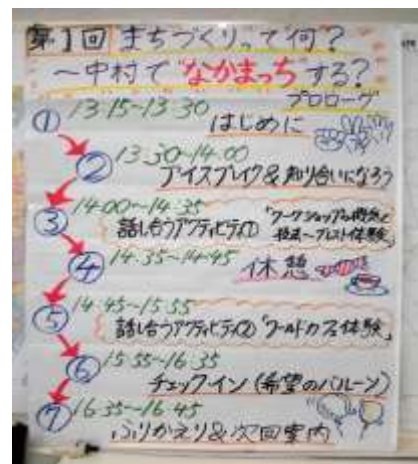 第1回 まちづくりって何?
~中村で"なかまっち"する?
プロローグ
① 13:15~13:30
はじめに
② 13:30~14:00
アイスブレイク&お知り合いになろう
③ 14:00~14:35
話し合うアクティビティ① 「ワークショップの概念と
技法~ブレスト体験」
④ 14:35~14:45
休憩
⑤ 14:45~15:55
話し合うアクティビティ② 「ワールドカフェ体験」
⑥ 15:55~16:35
チェックイン(希望のバルーン)
⑦ 16:35~16:45
ふりかえり&次回案内